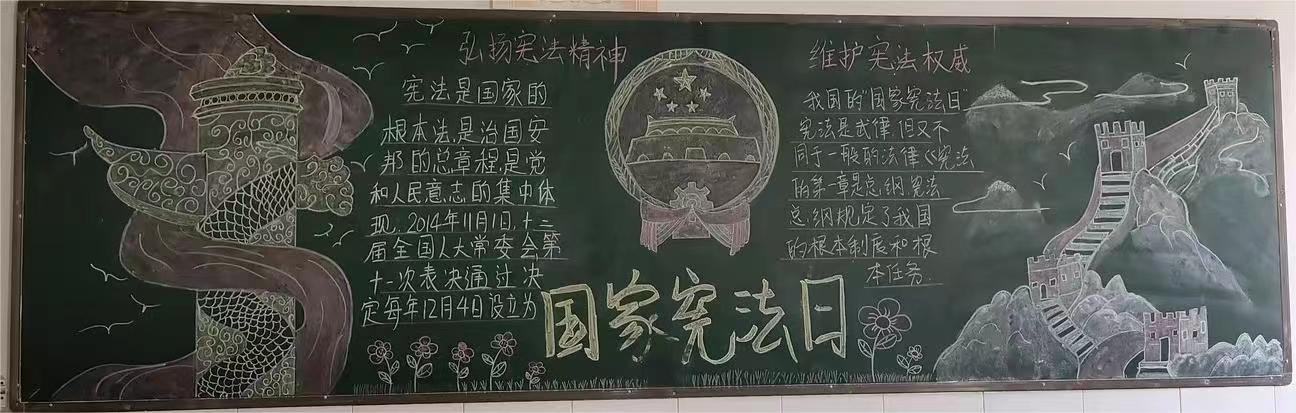 弘扬宪法精神
宪法是国家的
根本法,是治国安
邦的总章程,是党
和人民意志的集中体
现。2014年11月1日,十二
届全国人大常委会第
十一次表决通过决
定每年12月4日设立为
国家宪法日
维护宪法权威
我国的“国家宪法日”
宪法是法律,但又不
同于一般的法律《宪法
的第一章是总纲,宪法
总纲规定了我国
的根本制度和根
本任务.